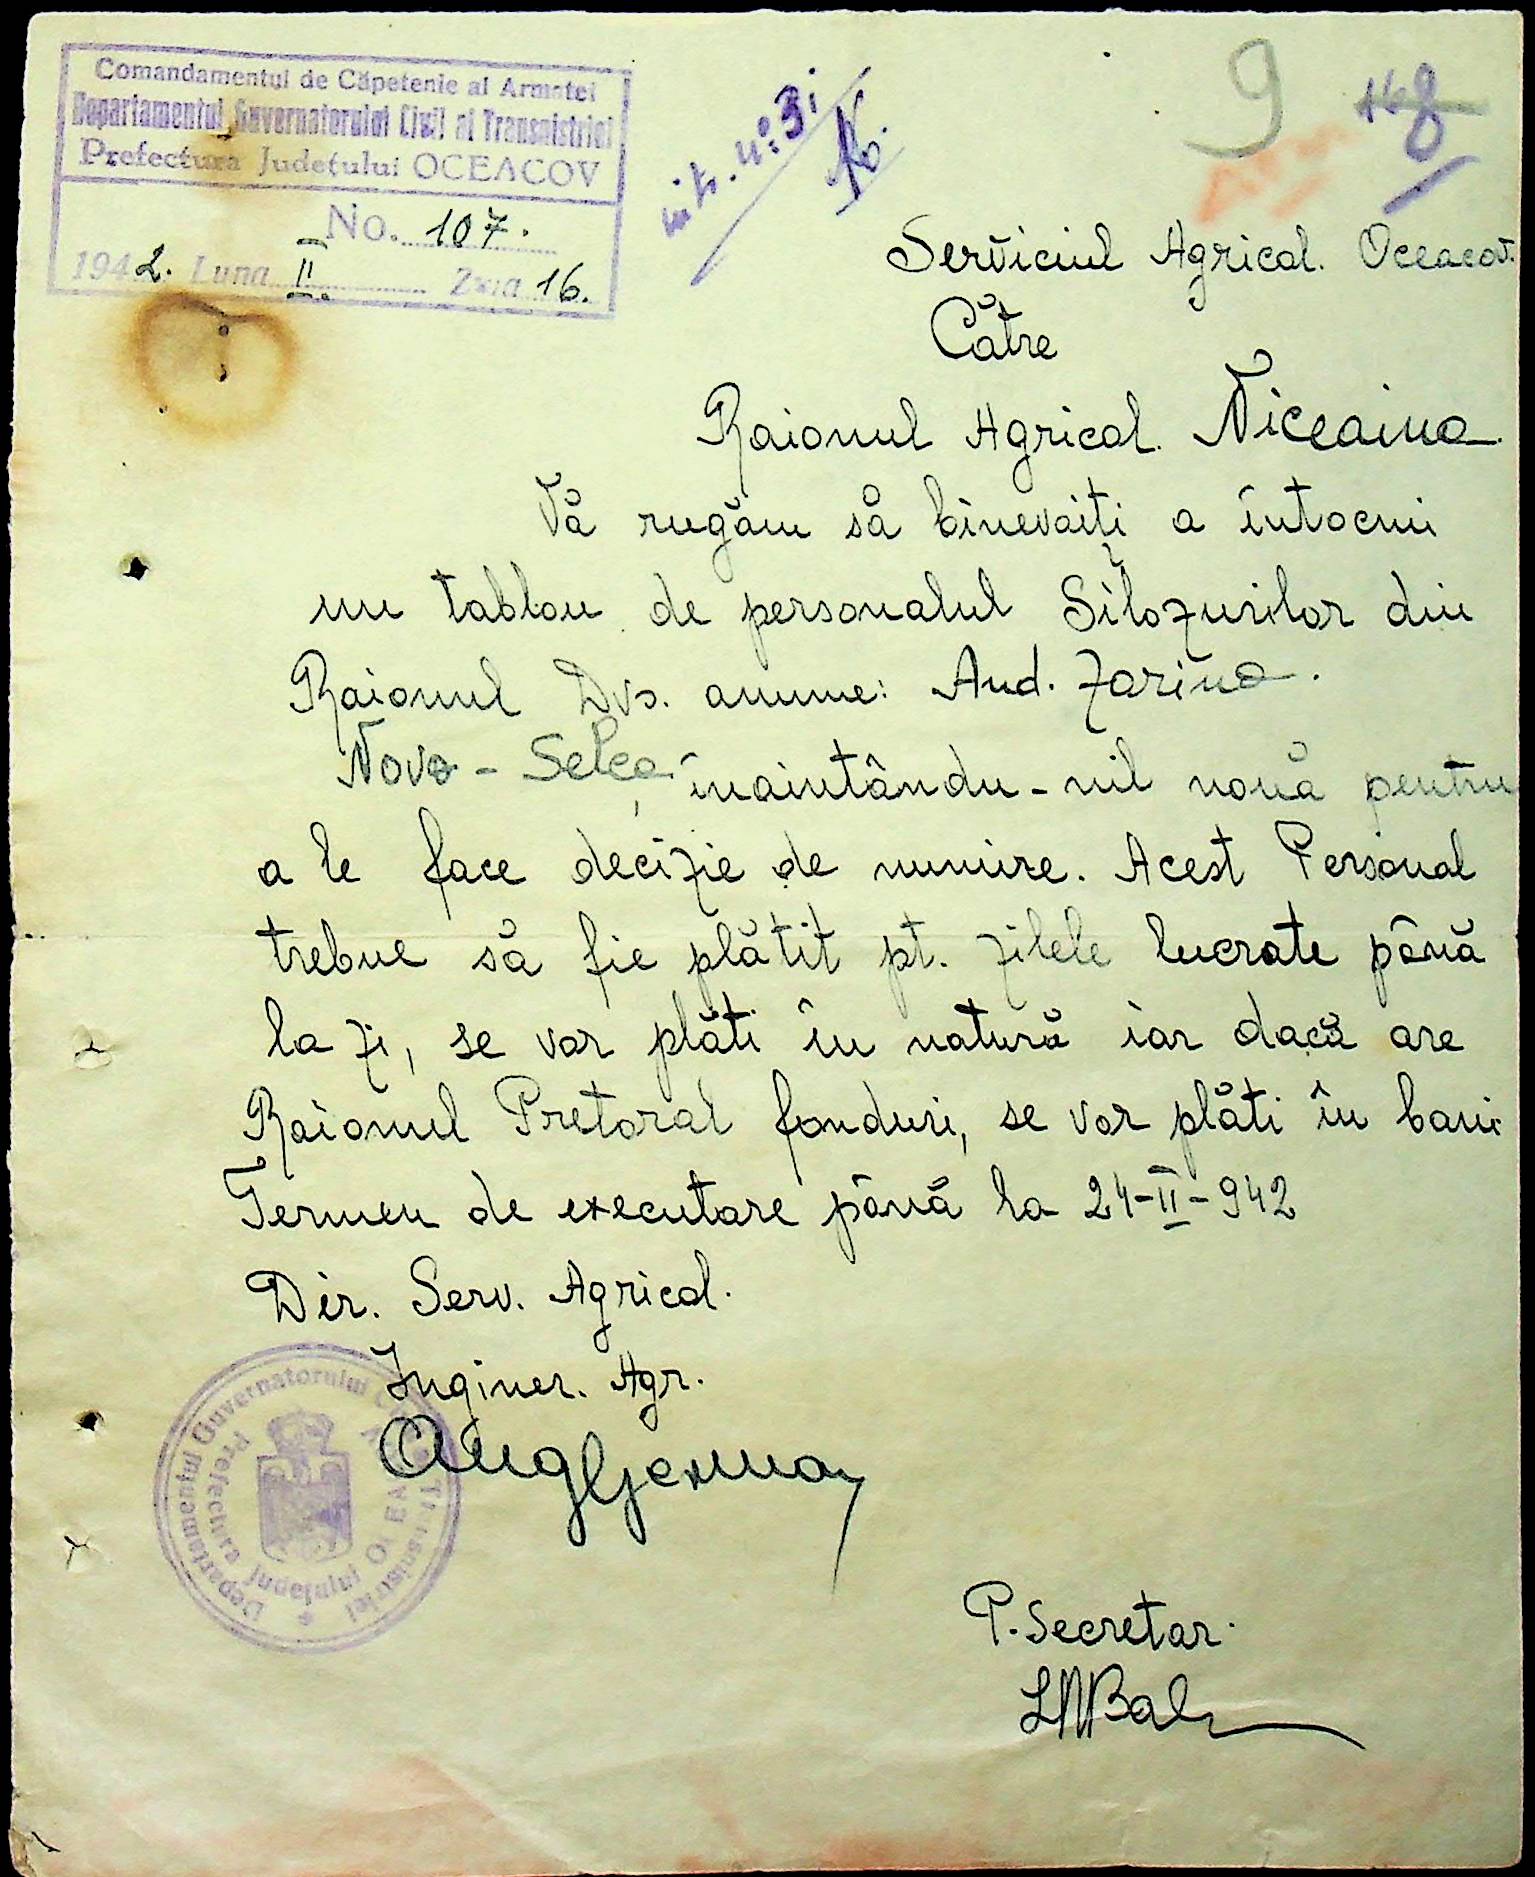 Comandamentul de Căpetenie al Armatei
Departamentul Guvernatorului Civil al Transnistriei
Prefectura Județului OCEACOV
No. 107.
1942. Luna II. Ziua 16.
9
168
Serviciul Agricol. Oceacov.
Către
Raionul Agricol. Niceaina
Vă rugăm să binevoiți a întocmi
un tablou de personalul Silozurilor din
Raionul Dvs. anume: And. Zarino.
Novo - Selca, înaintându-nil nouă pentru
a le face decizie de numire. Acest Personal
trebue să fie plătit pt. zilele lucrate până
la zi, se vor plăti în natură iar dacă are
Raionul Pretoral fonduri, se vor plăti în bani
Termen de executare până la 24-II-942
Dir. Serv. Agricol.
Inginer. Agr.
Departamentul Guvernatorului Transnistriei
Prefectura Județului
P. Secretar.